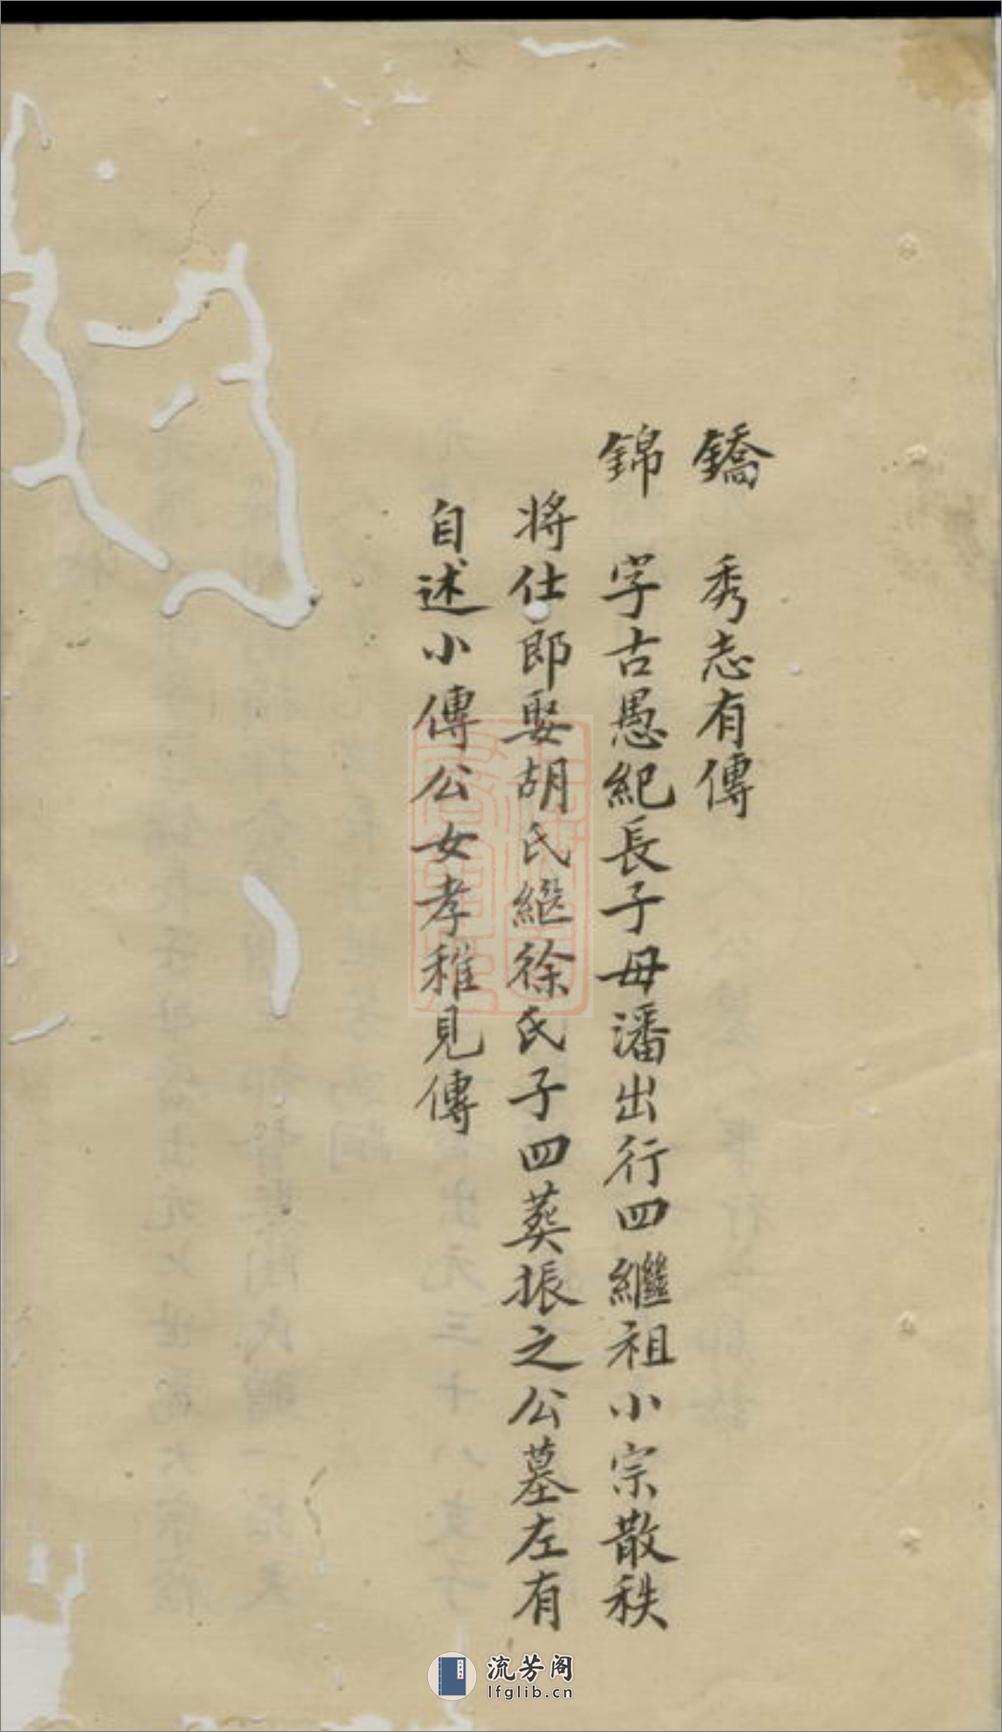 鐈 秀志有傳
錦 字古愚紀長子母潘出行四繼祖小宗散秩
將仕郎娶胡氏継徐氏子四葬振之公墓左有
自述小傳公女孝稚見傳
流芳阁
lfglib.cn